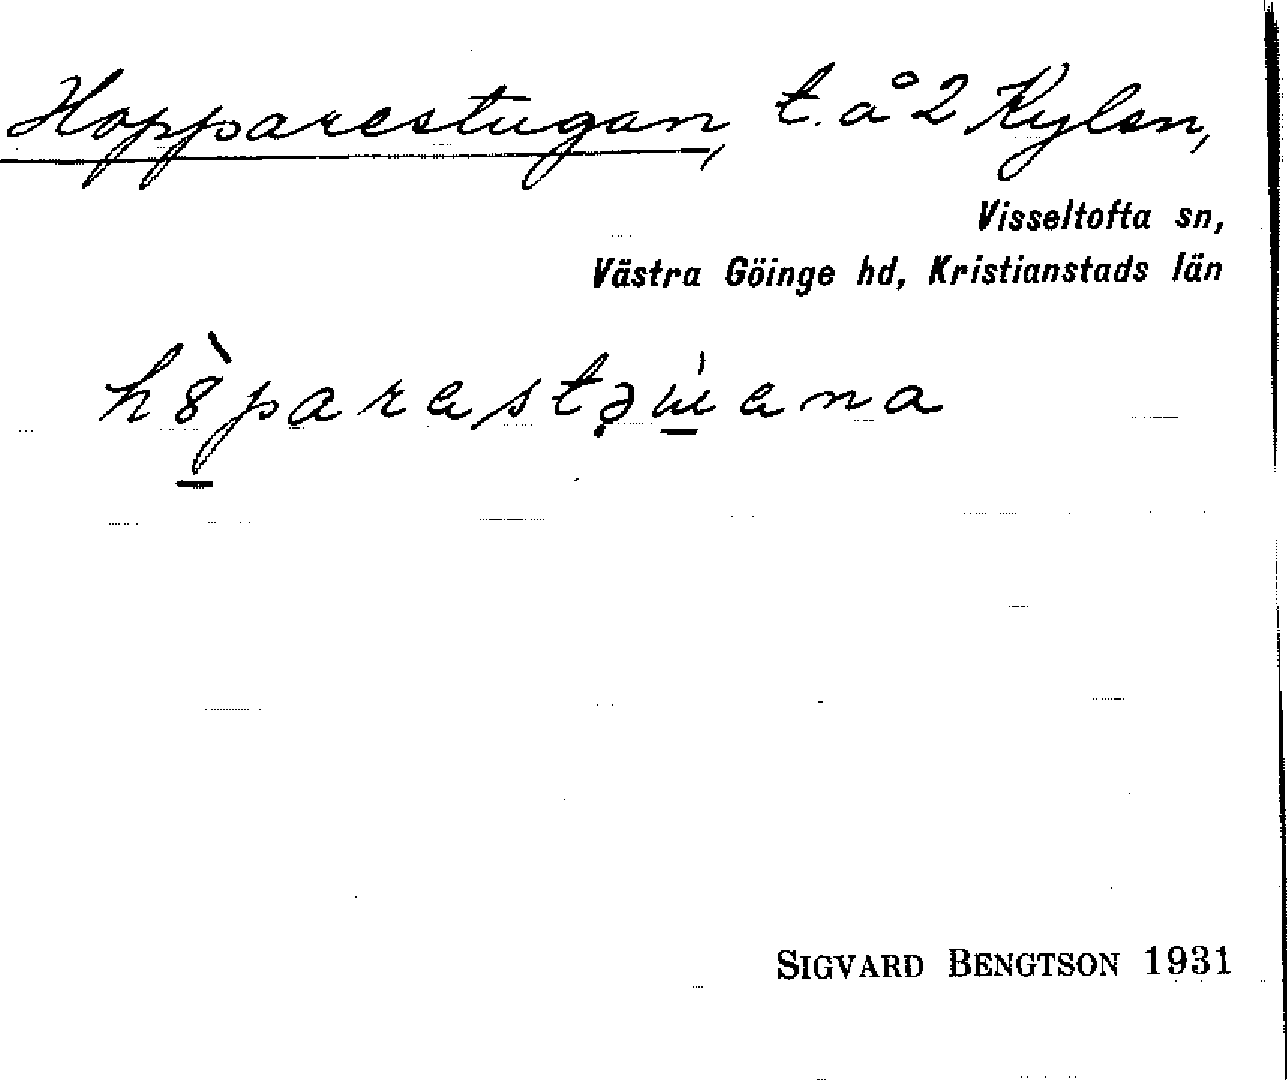 Hopparestugan, t. å 2 Kylen,
Visseltofta sn,
Västra Göinge hd, Kristianstads län
SIGVARD BENGTSON 1931